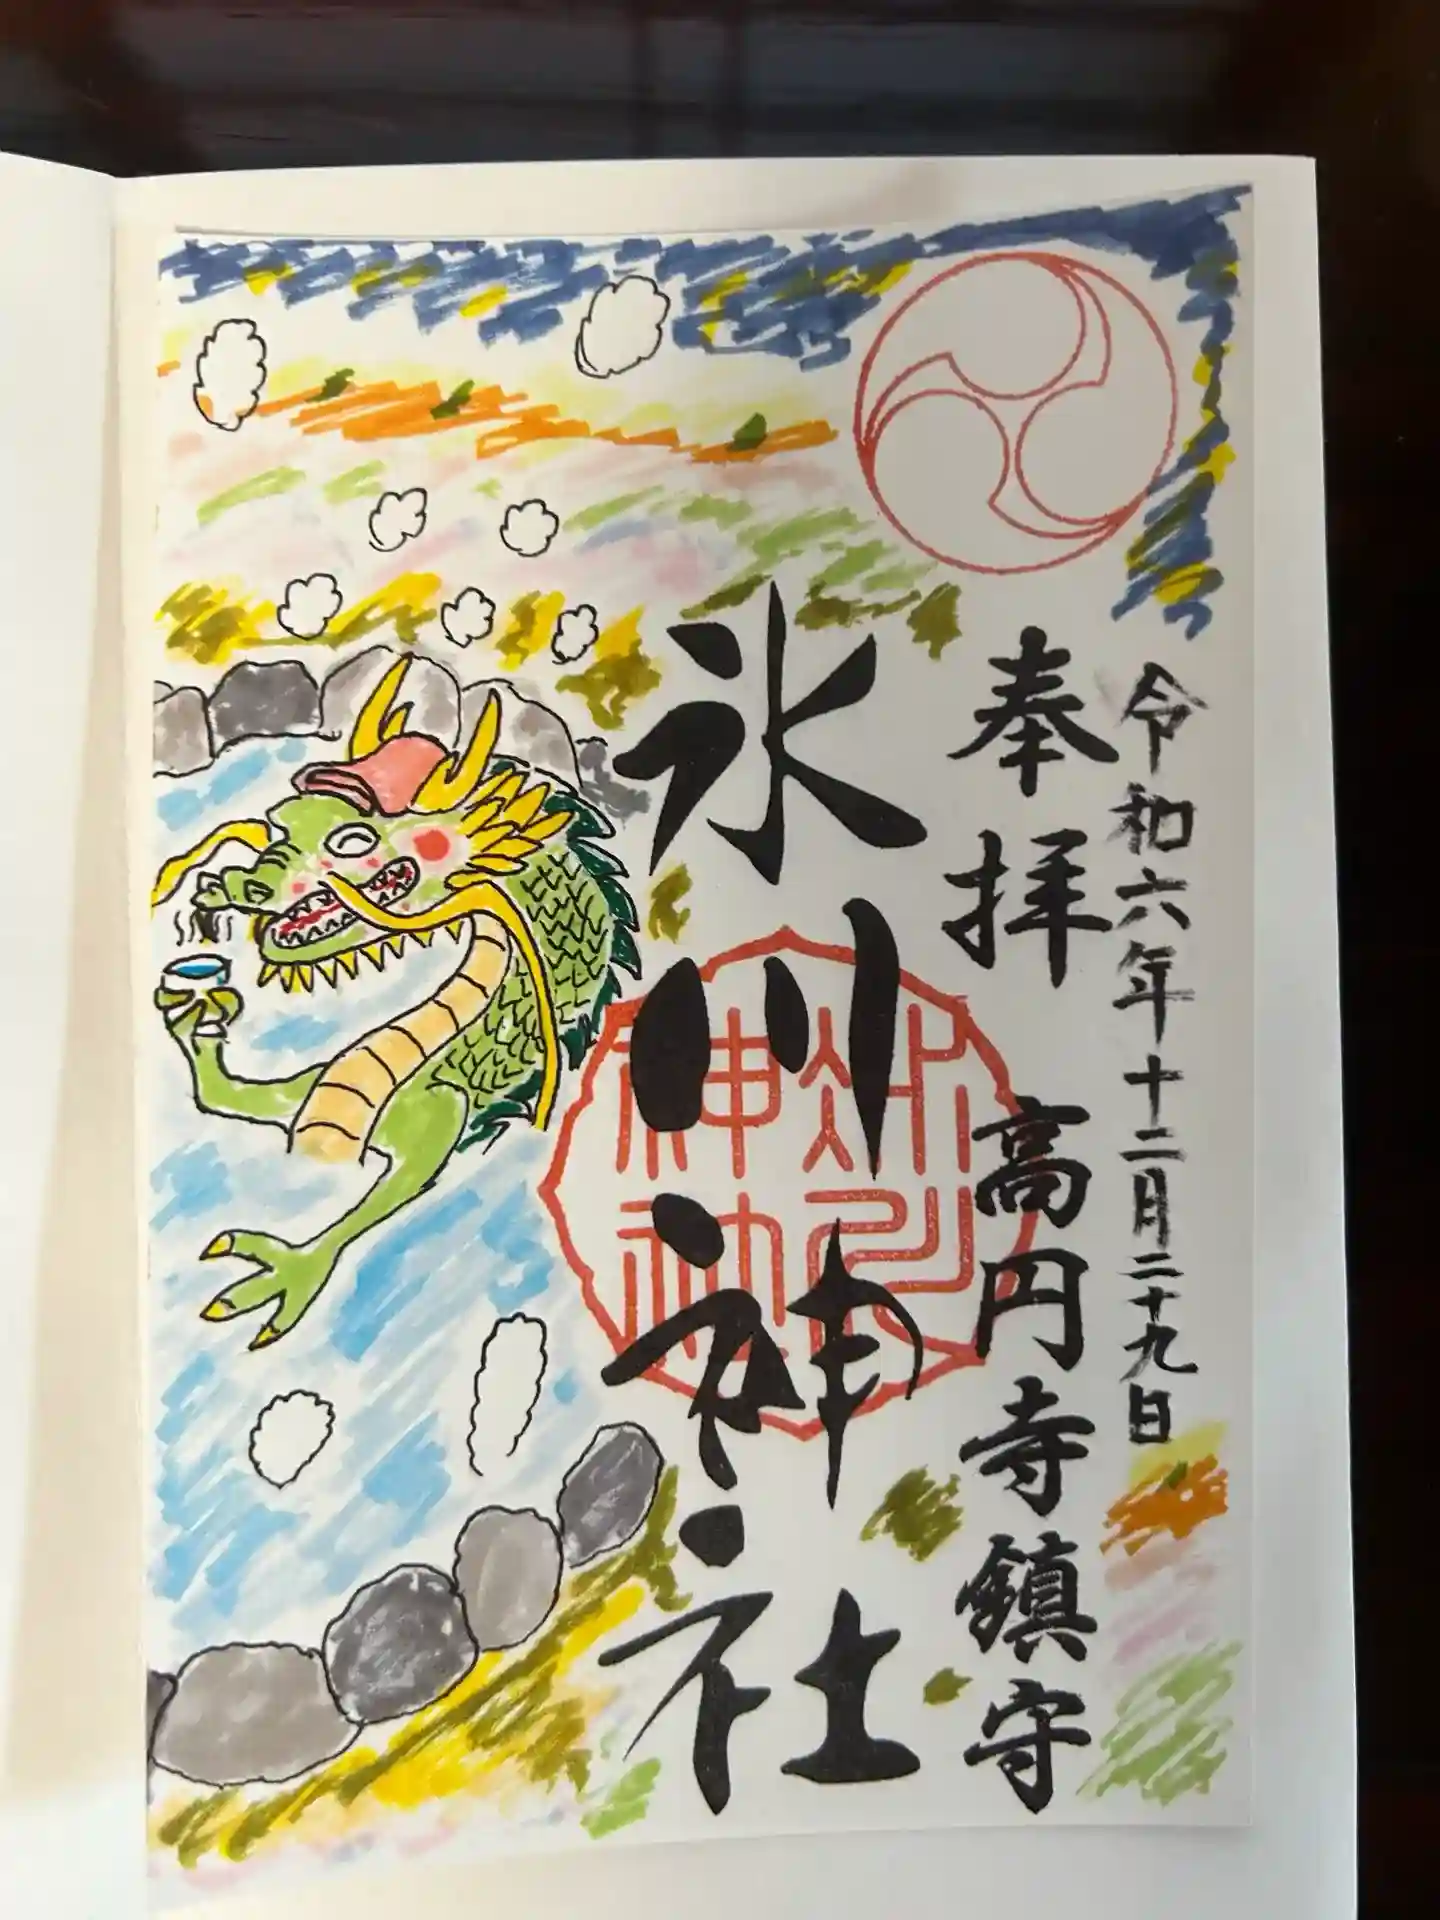 令和六年十二月二十九日
奉拝 高円寺鎮守
氷川神社
氷川
神社